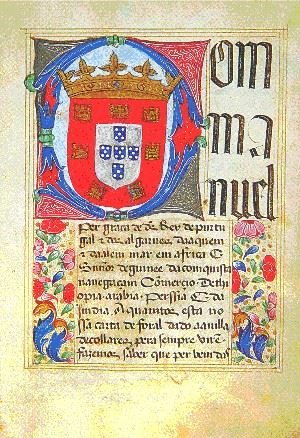 Dom
ma
nuel
Per graça de ds Rey de purtu
gal e dos algarues daaquem
e daalem mar em africa E
Sñor de guinee da comquista
nauegaçam Comerçio Dethi
opia arabia Perssia E da
India A quamtos esta no
ssa carta de foral dado aa villa
de collares pera sempre virē
fazemos saber que per bem das